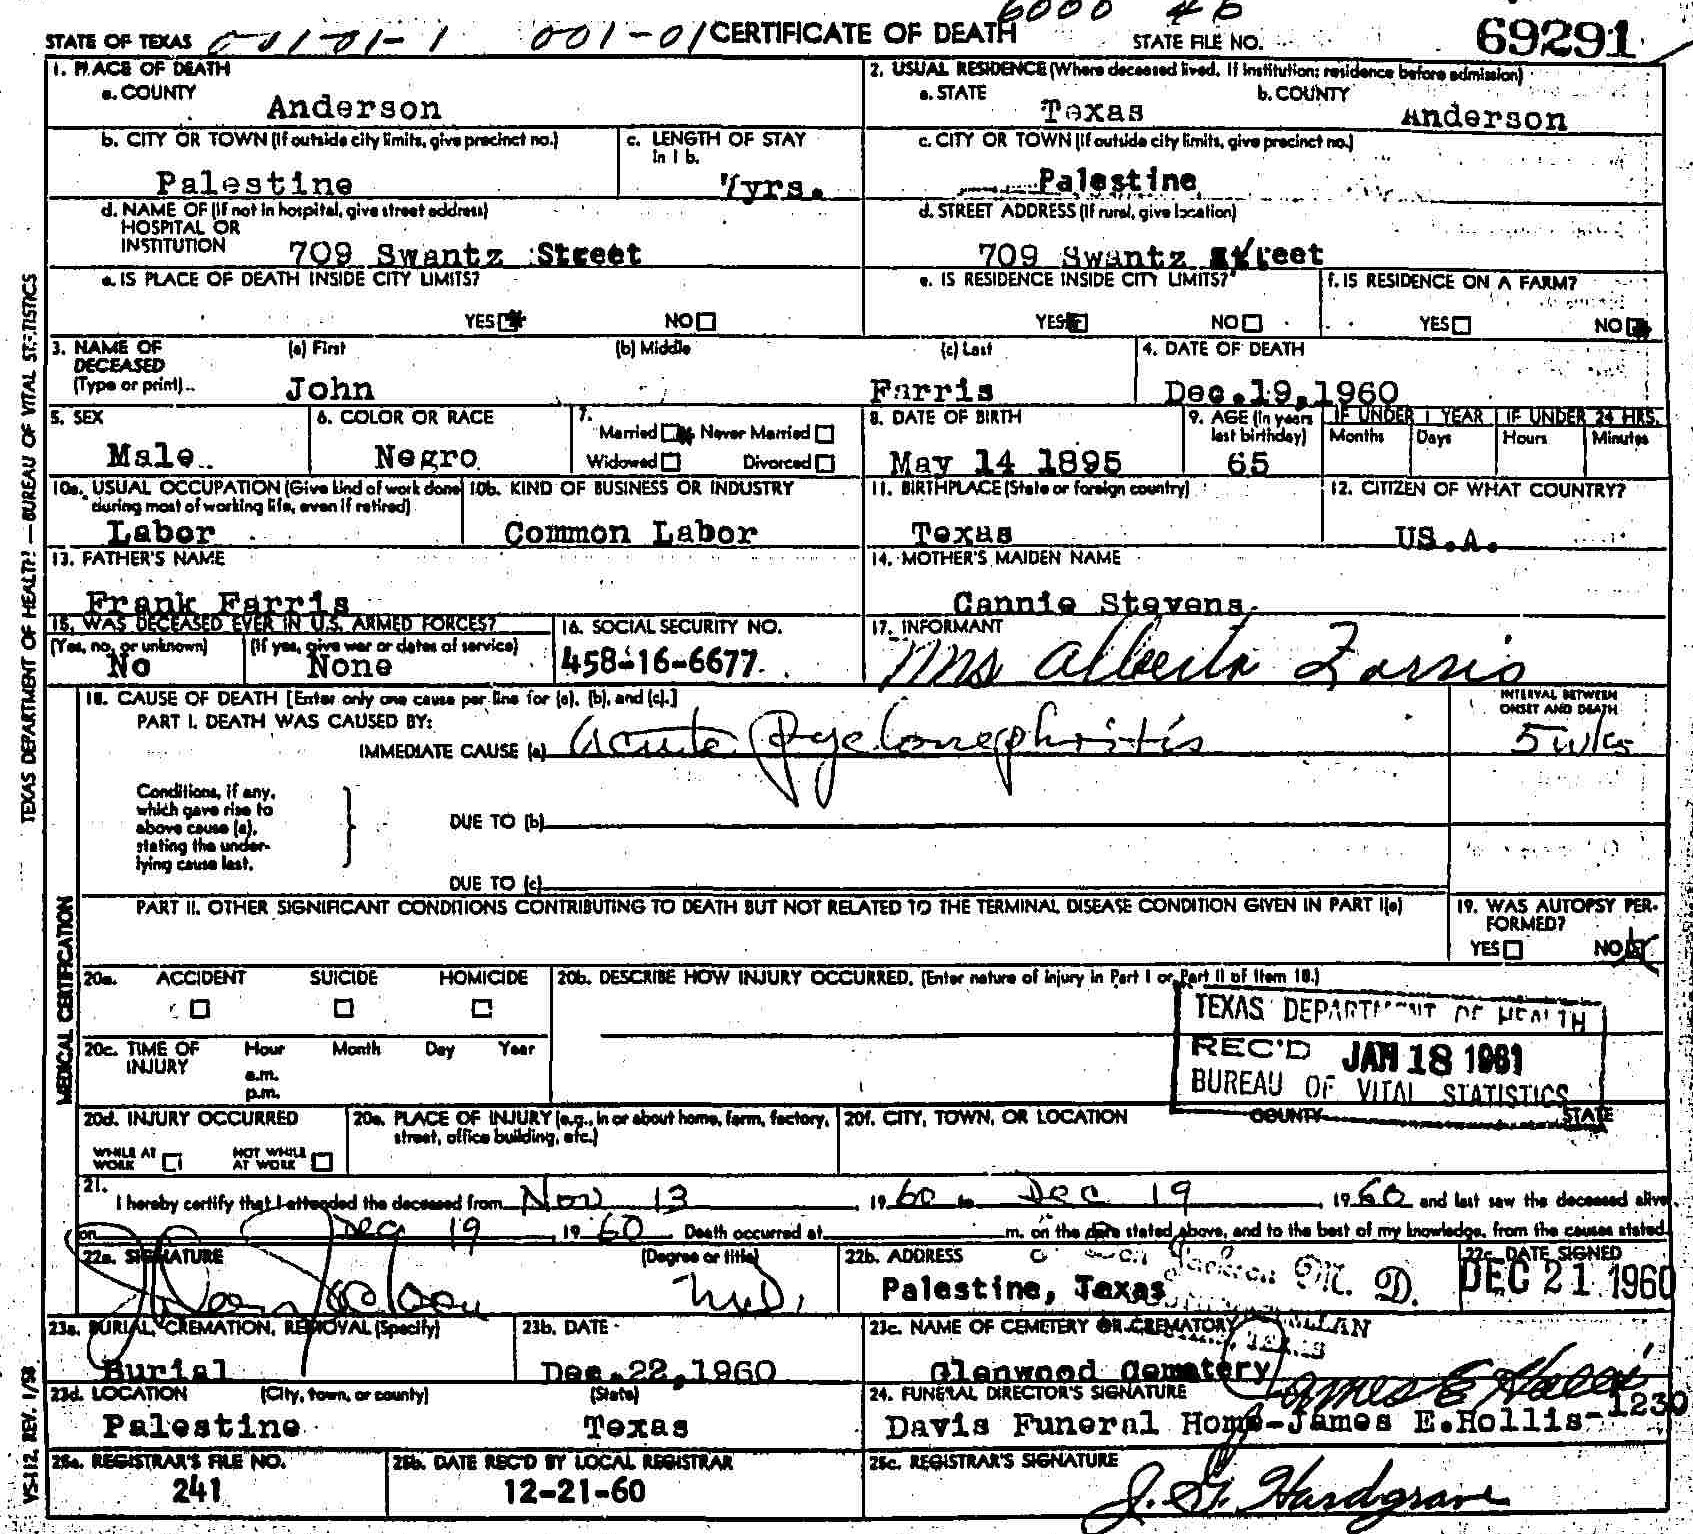 6000 46
STATE OF TEXAS 00101-1 001-01 CERTIFICATE OF DEATH STATE FILE NO. 69291
1. PLACE OF DEATH 2. USUAL RESIDENCE (Where deceased lived. If institution: residence before admission)
a. COUNTY a. STATE b. COUNTY
Anderson Texas Anderson
b. CITY OR TOWN (If outside city limits, give precinct no.) c. LENGTH OF STAY in 1 b. c. CITY OR TOWN (If outside city limits, give precinct no.)
Palestine 7yrs. Palestine
d. NAME OF (If not in hospital, give street address) d. STREET ADDRESS (If rural, give location)
HOSPITAL OR
INSTITUTION 709 Swantz Street 709 Swantz Street
e. IS PLACE OF DEATH INSIDE CITY LIMITS? e. IS RESIDENCE INSIDE CITY LIMITS? f. IS RESIDENCE ON A FARM?
YES NO YES NO YES NO
3. NAME OF DECEASED (Type or print) (a) First (b) Middle (c) Last 4. DATE OF DEATH
John Farris Dec.19,1960
5. SEX 6. COLOR OR RACE 7. Married Never Married Widowed Divorced 8. DATE OF BIRTH 9. AGE (In years last birthday) IF UNDER 1 YEAR IF UNDER 24 HRS.
Months Days Hours Minutes
Male Negro May 14 1895 65
10a. USUAL OCCUPATION (Give kind of work done during most of working life, even if retired) 10b. KIND OF BUSINESS OR INDUSTRY 11. BIRTHPLACE (State or foreign country) 12. CITIZEN OF WHAT COUNTRY?
Labor Common Labor Texas US.A.
13. FATHER'S NAME 14. MOTHER'S MAIDEN NAME
Frank Farris Cannie Stevens
15. WAS DECEASED EVER IN U.S. ARMED FORCES? 16. SOCIAL SECURITY NO. 17. INFORMANT
(Yes, no, or unknown) (If yes, give war or dates of service)
No None 458-16-6677 Mrs Alberta Farris
18. CAUSE OF DEATH [Enter only one cause per line for (a), (b), and (c).] INTERVAL BETWEEN ONSET AND DEATH
PART I. DEATH WAS CAUSED BY:
IMMEDIATE CAUSE (a) Acute Pyelonephritis 5 wks
Conditions, if any, which gave rise to above cause (a), stating the underlying cause last.
DUE TO (b)
DUE TO (c)
PART II. OTHER SIGNIFICANT CONDITIONS CONTRIBUTING TO DEATH BUT NOT RELATED TO THE TERMINAL DISEASE CONDITION GIVEN IN PART I(a) 19. WAS AUTOPSY PERFORMED?
YES NO
20a. ACCIDENT SUICIDE HOMICIDE 20b. DESCRIBE HOW INJURY OCCURRED. (Enter nature of injury in Part I or Part II of item 18.)
TEXAS DEPARTMENT OF HEALTH
REC'D JAN 18 1961
BUREAU OF VITAL STATISTICS
20c. TIME OF INJURY Hour Month Day Year
a.m.
p.m.
20d. INJURY OCCURRED 20e. PLACE OF INJURY (e.g., in or about home, farm, factory, street, office building, etc.) 20f. CITY, TOWN, OR LOCATION COUNTY STATE
WHILE AT WORK NOT WHILE AT WORK
21. I hereby certify that I attended the deceased from Nov 13, 1960 to Dec 19, 1960 and last saw the deceased alive
on Dec 19, 1960 Death occurred at m. on the date stated above, and to the best of my knowledge, from the causes stated.
22a. SIGNATURE (Degree or title) 22b. ADDRESS 22c. DATE SIGNED
M.D. Palestine, Texas Jackson M. D. DEC 21 1960
23a. BURIAL, CREMATION, REMOVAL (Specify) 23b. DATE 23c. NAME OF CEMETERY OR CREMATORY
Burial Dec.22,1960 Glenwood Cemetery
23d. LOCATION (City, town, or county) (State) 24. FUNERAL DIRECTOR'S SIGNATURE James E Hollis
Palestine Texas Davis Funeral Home-James E.Hollis-1230
25a. REGISTRAR'S FILE NO. 25b. DATE REC'D BY LOCAL REGISTRAR 25c. REGISTRAR'S SIGNATURE
241 12-21-60 J. G. Hardgrave
TEXAS DEPARTMENT OF HEALTH — BUREAU OF VITAL STATISTICS
MEDICAL CERTIFICATION
VS-112 REV. 1/58